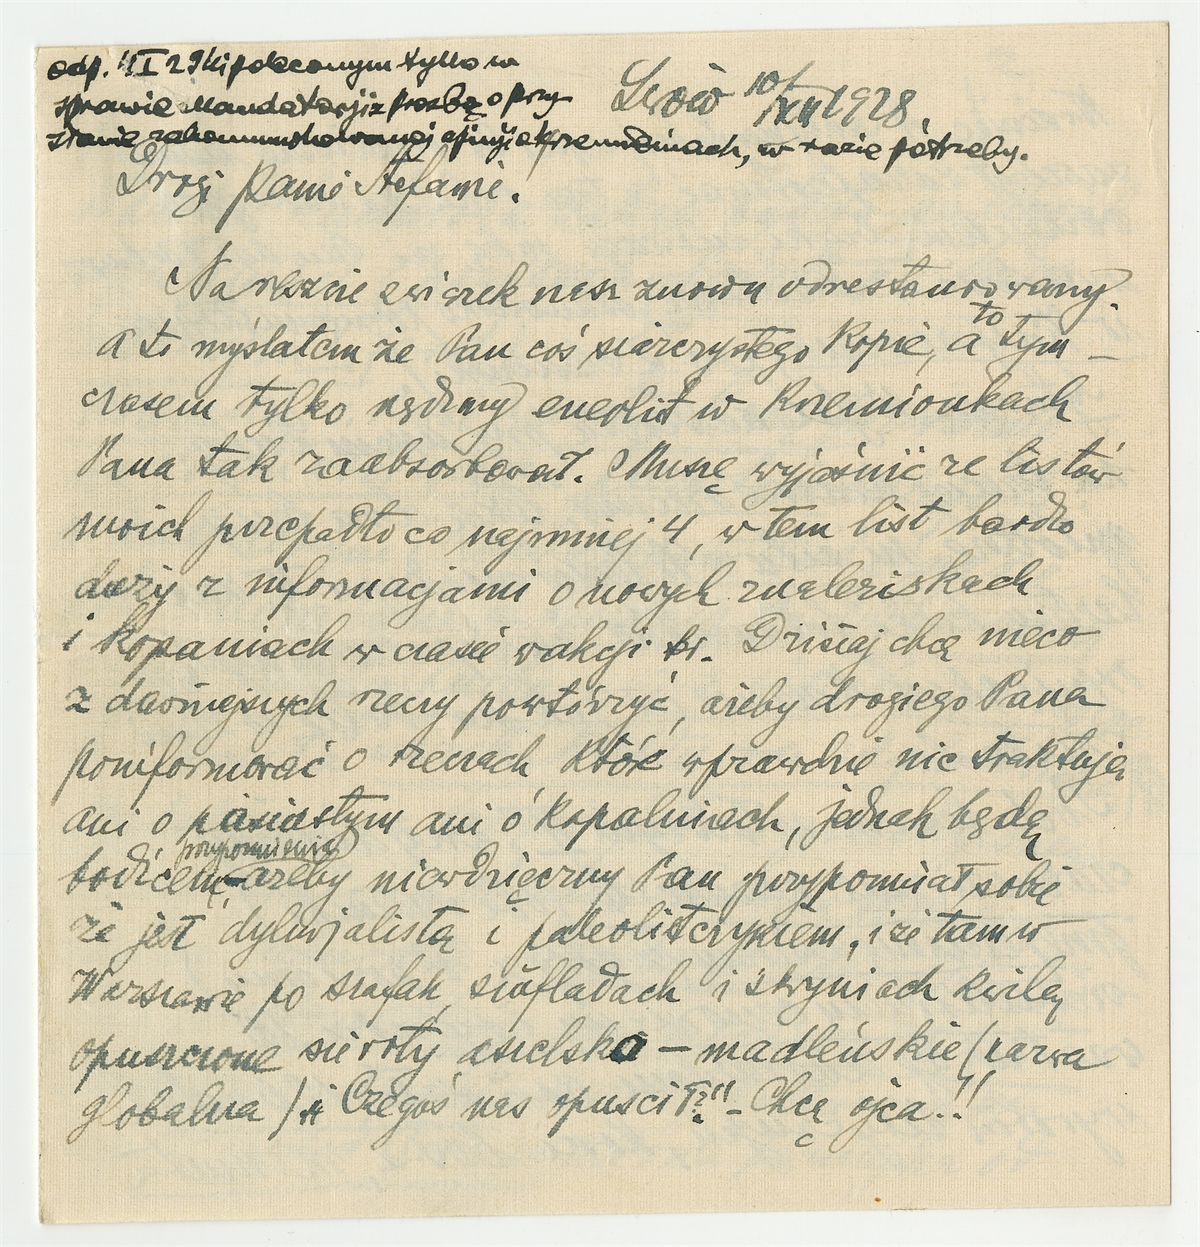 odp. 4 I 29 list poleconym tylko w
sprawie Mandatarji z prośbą o przy
słanie zakomunikowanej opinji o Krzemionkach, w razie potrzeby.
Lwów 10/XII 1928.
Drogi Panie Stefanie!
Nareszcie związek nasz znowu odrestaurowany.
A to myślałem że Pan coś siarczystego kopie, a to tym-
czasem tylko nędzny eneolit w Krzemionkach
Pana tak zaabsorbował. Muszę wyjaśnić że listów
moich przepadło co najmniej 4, w tem list bardzo
duży z informacjami o nowych znaleziskach
i kopaniach w czasie wakcji br. Dzisiaj chcę nieco
z dawniejszych rzeczy powtórzyć, ażeby drogiego Pana
poinformować o rzeczach które wprawdzie nie traktują
ani o pasiastym ani o kopalniach, jednak będą
bodźcem przypomnienia ażeby niewdzięczny Pan przypomniał sobie
że jest dyluwjalistą i paleolitczykiem, i że tam w
Warszawie po szafach, szufladach i skryniach kwilą
opuszczone sieroty aszelsko - madleńskie (parwa
globalna) i Czegoś nas opuścił?!! - Chcą ojca!!